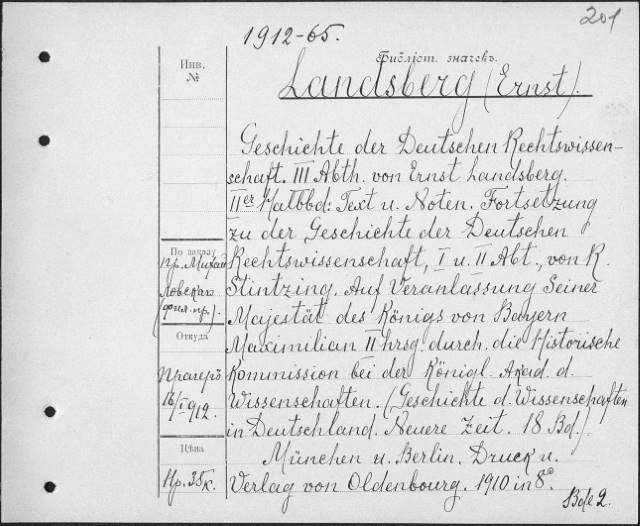 201
1912-65.
Инв.
№
Библіот. значекъ.
Landsberg (Ernst).
Geschichte der Deutschen Rechtswissen-
schaft. III Abth. von Ernst Landsberg.
IIer Halbbd: Text u. Noten. Fortsetzung
zu der Geschichte der Deutschen
Rechtswissenschaft, I u. II Abt., von R.
Stintzing. Auf Veranlassung Seiner
Majestät des Königs von Bayern
Maximilian II hrsg. durch die Historische
Kommission bei der Königl. Akad. d.
Wissenschaften. (Geschichte d. Wissenschaften
in Deutschland. Neuere Zeit. 18 Bd.).
München u. Berlin. Druck u.
Verlag von Oldenbourg. 1910 in 8°
Bde 2.
По заказу
пр. Михай
ловскаго
Откуда
Прагеръ
16/I 1912.
Цѣна
35к.